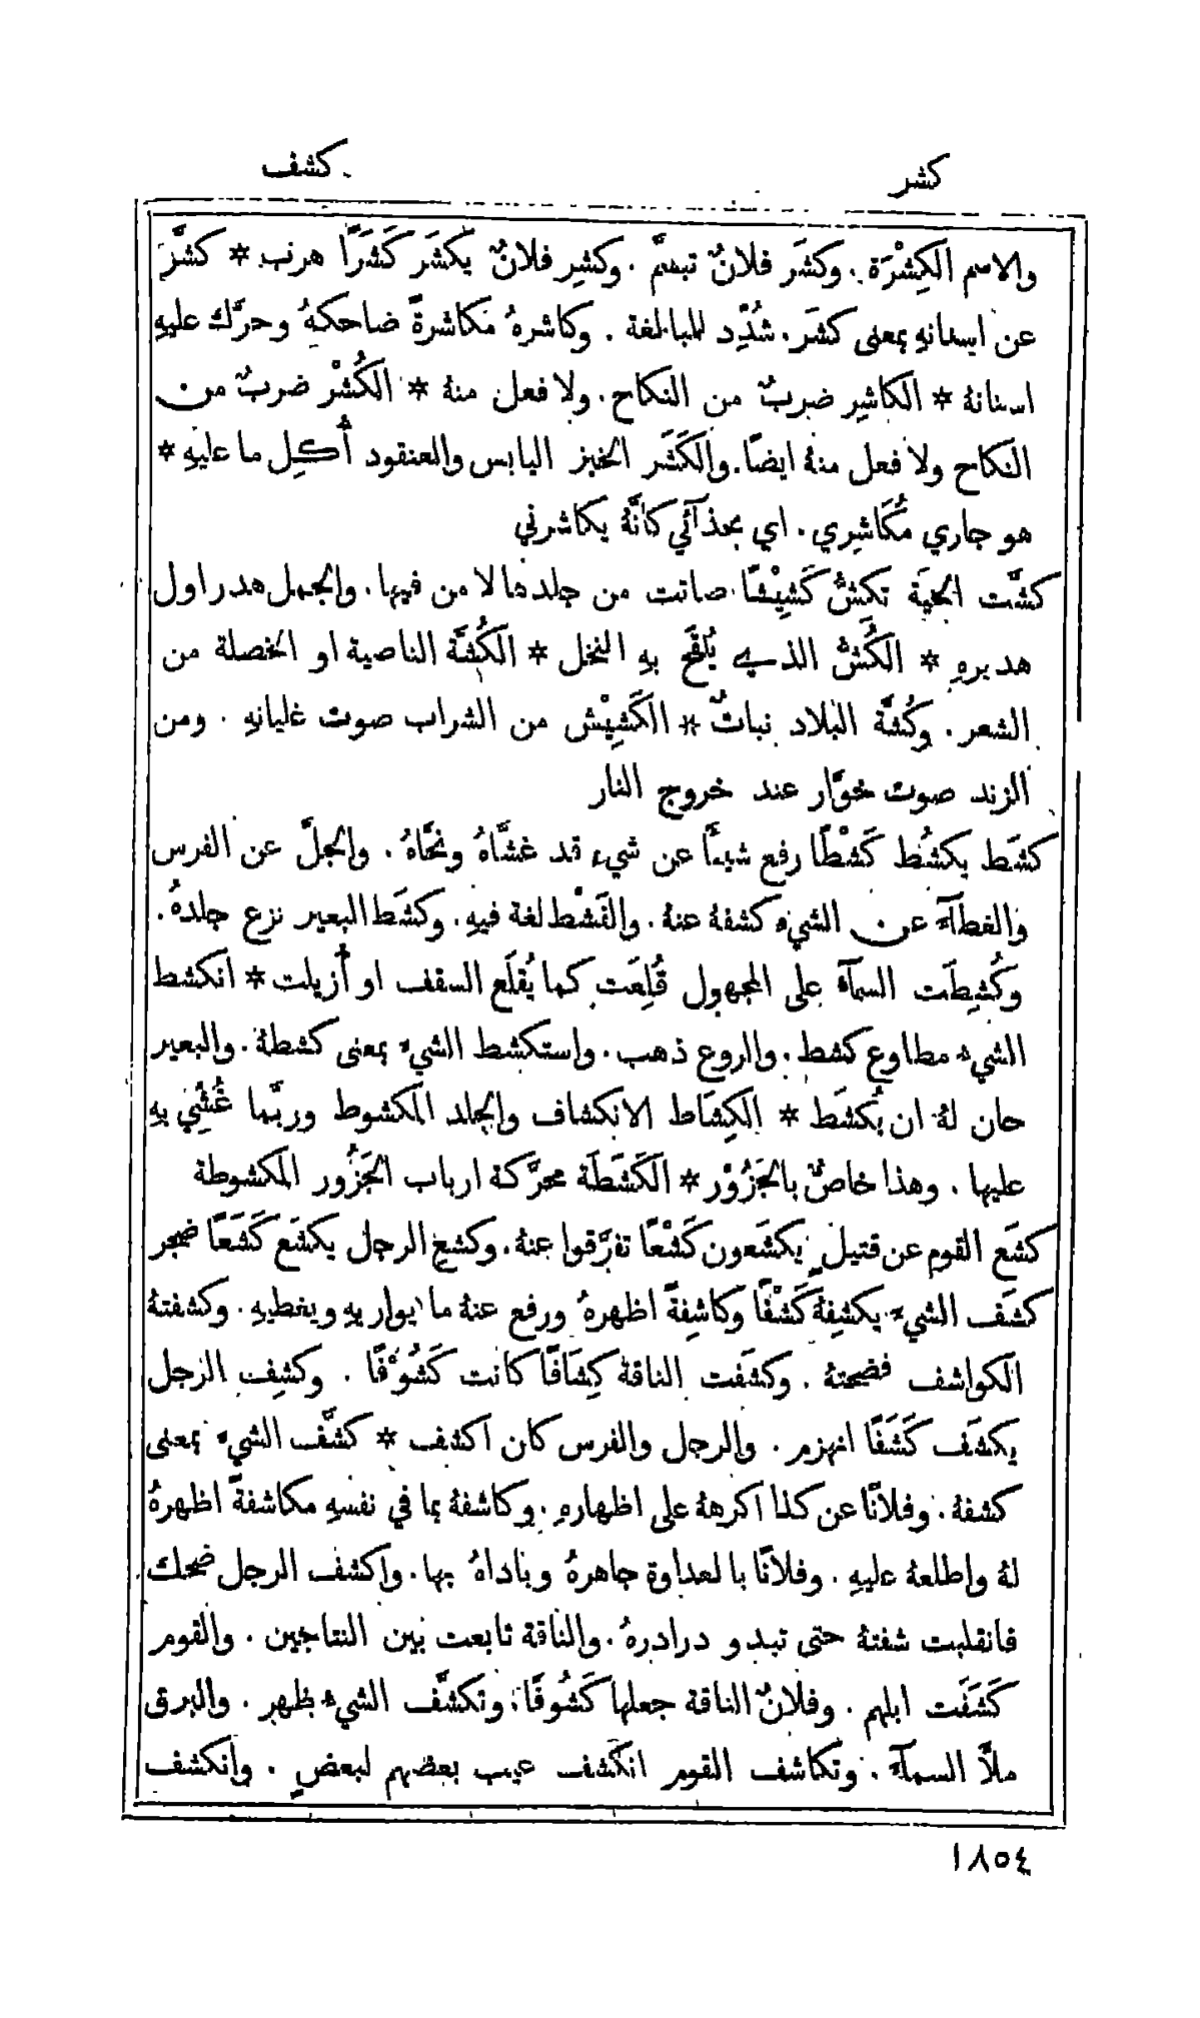 كشر
كشف
والاسم الكِشْرَة. وكشَر فلانٌ تبسَّم. وكشِر فلانٌ يكشَر كَشَرًا هرب * كشَّر
عن اسنانهِ بمعنى كشَر. شُدِّد للمبالغة. وكاشرهُ مكاشرةً ضاحكهُ وحرَّك عليهِ
اسنانهُ * الكاشِر ضربٌ من النكاح. ولا فعل منهُ * الكُشْر ضربٌ من
النكاح ولا فعل منهُ ايضًا. والكَشَر الخبز اليابس والعنقود أُكِل ما عليهِ *
هو جاري مُكَاشِري. اي بحذآئي كانَّهُ يكاشرني
كشَّت الحيَة تكِشُّ كَشِيْشًا صاتت من جلدها لا من فيها. والجمل هدر اول
هديرهِ * الكُشُّ الذي يُلقَح بهِ النخل * الكُشَّة الناصية او الخصلة من
الشعر. وكُشَّة البلاد نباتٌ * الكَشِيْش من الشراب صوت غليانهِ. ومن
الزند صوت خوَّار عند خروج النار
كشَط يكشُط كَشْطًا رفع شيئًا عن شيء قد غشَّاهُ ونحَّاهُ. والجلَّ عن الفرس
والغطآءَ عن الشيء كشفهُ عنهُ. والقَشْط لغة فيهِ. وكشَط البعير نزع جلدهُ.
وكُشِطَت السمآءُ على المجهول قُلِعَت كما يُقلَع السقف او أُزيلت * انكشط
الشيء مطاوع كشط. والروع ذهب. واستكشط الشيء بمعنى كشطهُ. والبعير
حان لهُ ان يُكشَط * الكِشَاط الانكشاف والجلد المكشوط وربَّما غُشِّي بهِ
عليها. وهذا خاصٌّ بالجَزُوْر * الكَشَطَة محرَّكة ارباب الجَزُور المكشوطة
كشَع القوم عن قتيلٍ يكشَعون كَشْعًا تفرَّقوا عنهُ. وكشِع الرجل يكشَع كَشَعًا ضجر
كشَف الشيء يكشِفهُ كَشْفًا وكاشِفةً اظهرهُ ورفع عنهُ ما يواريهِ ويغطيهِ. وكشفتهُ
الكواشف فضحتهُ. وكشَفت الناقة كِشَافًا كانت كَشُوْفًا. وكشِف الرجل
يكشَف كَشَفًا انهزم. والرجل والفرس كان اكشف * كشَّف الشيء بمعنى
كشفهُ. وفلانًا عن كذا اكرههُ على اظهارهِ. وكاشفهُ بما في نفسهِ مكاشفةً اظهرهُ
لهُ واطلعهُ عليهِ. وفلانًا بالعداوة جاهرهُ وباداهُ بها. واكشف الرجل ضحك
فانقلبت شفتهُ حتى تبدو درادرهُ. والناقة تابعت بين النتاجين. والقوم
كَشَفَت ابلهم. وفلانٌ الناقة جعلها كَشُوفًا. وتكشَّف الشيء ظهر. والبرق
ملأَ السمآءَ. وتكاشف القوم انكشف عيب بعضهم لبعضٍ. وانكشف
١٨٥٤